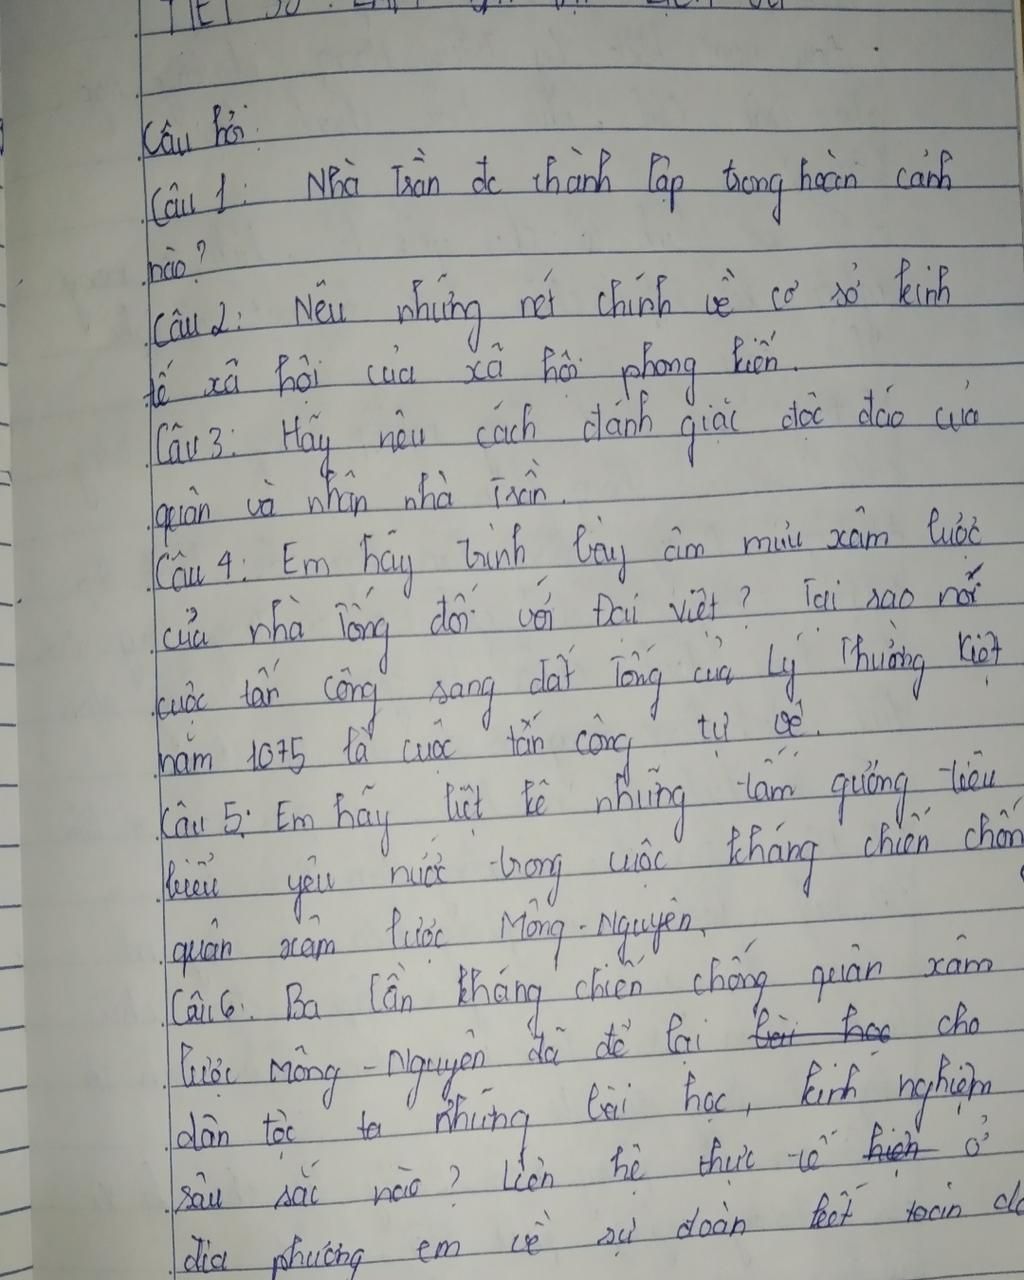 Câu hỏi:
Câu 1: Nhà Trần đc thành lập trong hoàn cảnh
nào?
Câu 2: Nêu những nét chính về cơ sở kinh
tế xã hội của xã hội phong kiến.
Câu 3: Hãy nêu cách đánh giặc độc đáo của
quân và nhân nhà Trần.
Câu 4: Em hãy trình bày âm mưu xâm lược
của nhà Tống đối với Đại Việt? Tại sao nói
cuộc tấn công sang đất Tống của Lý Thường Kiệt
năm 1075 là cuộc tấn công tự vệ.
Câu 5: Em hãy liệt kê những tấm gương tiêu
biểu yêu nước trong cuộc kháng chiến chốn
quân xâm lược Mông - Nguyên.
Câu 6: Ba lần kháng chiến chống quân xâm
lược Mông - Nguyên đã để lại bài học cho
dân tộc ta những bài học, kinh nghiệm
sâu sắc nào? Liên hệ thực tế hiện ở
địa phương em về sự đoàn kết toàn d